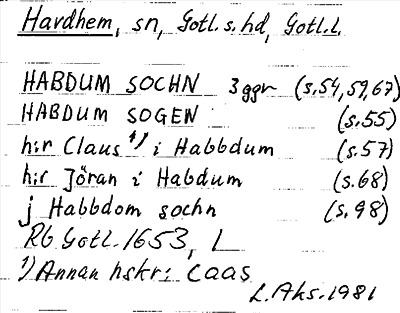 Havdhem, sn, Gotl. s. hd, Gotl. l.
HABDUM SOCHN 3 ggr (s. 54, 59, 67)
HABDUM SOGEN (s. 55)
h:r Claus 1) i Habbdum (s. 57)
h:r Jöran i Habdum (s. 68)
j Habbdom sochn (s. 98)
Rb Gotl. 1653, L
1) Annan hskr: Caas
L. Aks. 1981